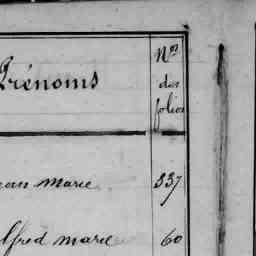 Prénoms
Nos
des
folios
ean Marie 337
lfred Marie 60